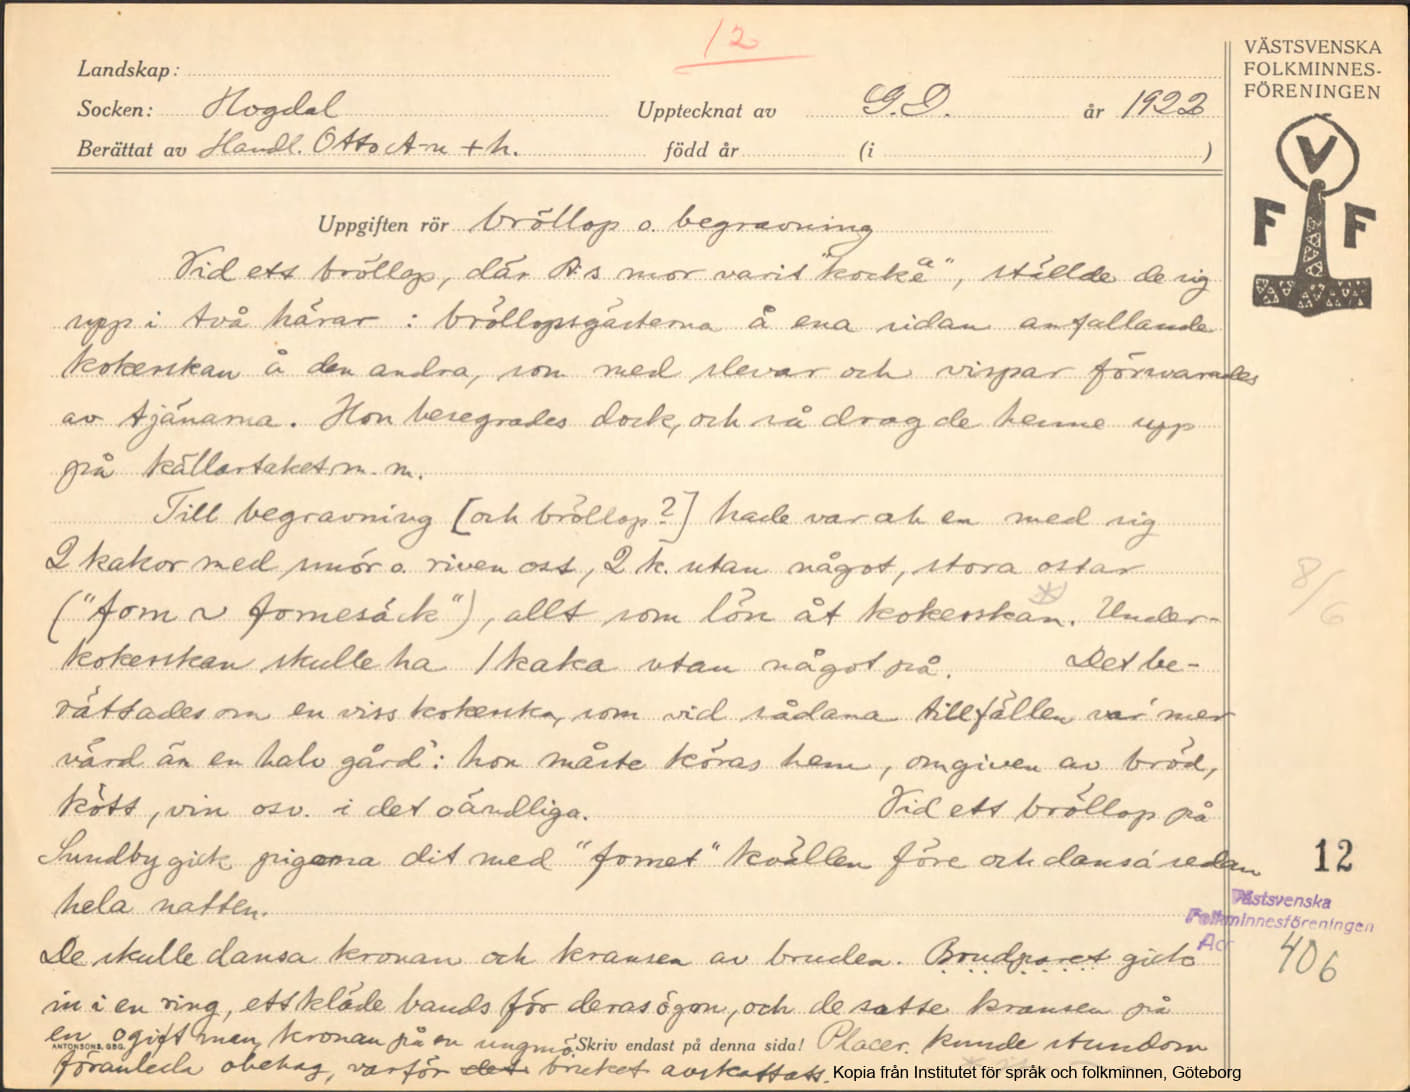 12
VÄSTSVENSKA
FOLKMINNES-
FÖRENINGEN
Landskap:
Socken: Hogdal Upptecknat av G.D. år 1922
Berättat av Handl. Otto A-n + h. född år (i )
V
F F
Uppgiften rör bröllop o. begravning
Vid ett bröllop, där A:s mor varit "kockå", ställde de sig
upp i två härar : bröllopsgästerna å ena sidan anfallande
kokerskan å den andra, som med slevar och vispar försvarades
av tjänarna. Hon besegrades dock, och så drog de henne upp
på källartaket m. m.
Till begravning [och bröllop?] hade var ah en med sig
2 kakor med smör o. riven ost, 2 k. utan något, stora ostar
("forn ~ fornesäck"), allt som lön åt kokerskan. Under-
kokerskan skulle ha 1 kaka utan något på. Det be-
rättades om en viss kokerska, som vid sådana tillfällen var 'mer
värd än en halv gård': hon måste köras hem, omgiven av bröd,
kött, vin osv. i det oändliga. Vid ett bröllop på
Sundby gick pigorna dit med "fornet" kvällen före och dansa' sedan
hela natten.
De skulle dansa kronan och kransen av bruden. Brudparet gick
in i en ring, ett kläde bands för deras ögon, och de satte kransen på
en ogift man, kronan på en ungmö. Skriv endast på denna sida! Placer. kunde stundom
ANTONSONS, GBG.
föranleda obehag, varför det bruket avskaffats.
8/6
12
Västsvenska
Folkminnesföreningen
Acc
406
Kopia från Institutet för språk och folkminnen, Göteborg